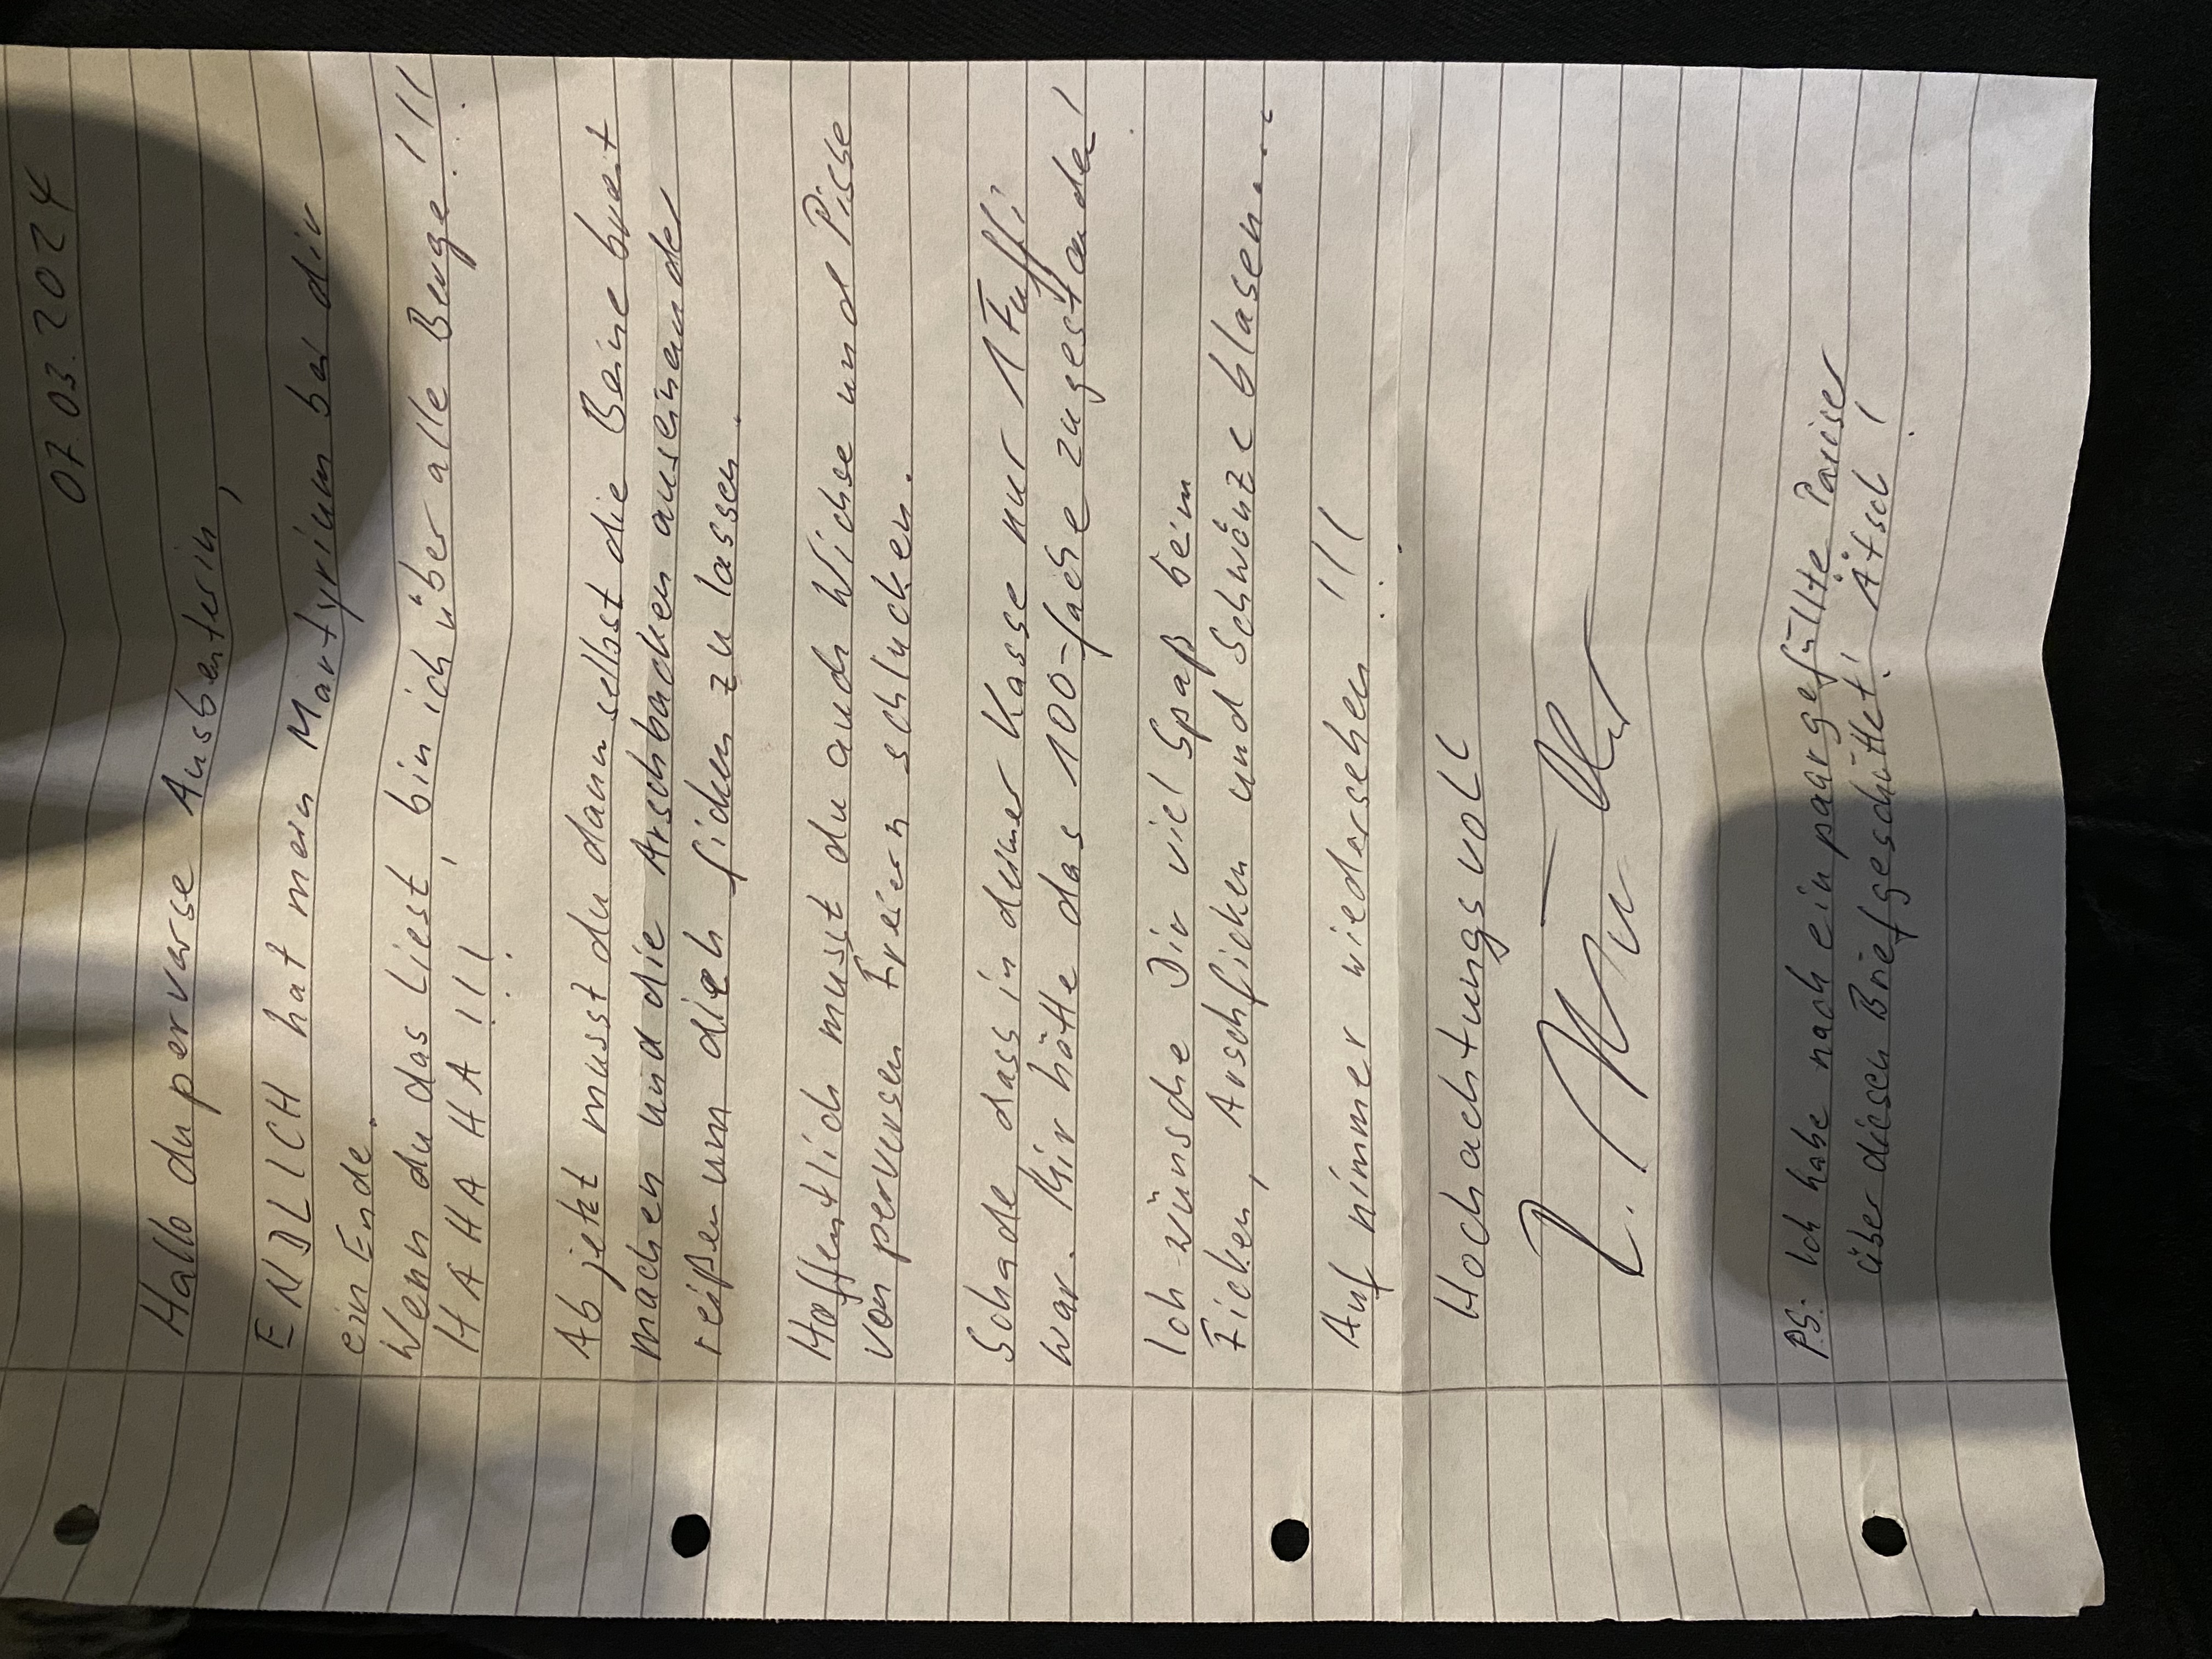 07.03.2024
Hallo du perverse Ausbeuterin,
ENDLICH hat mein Martyrium bei dir
ein Ende.
Wenn du das liest, bin ich über alle Berge!!!
HA HA HA!!!
Ab jetzt musst du dann selbst die Beine breit
machen und die Arschbacken auseinander
reißen um dich ficken zu lassen.
Hoffentlich musst du auch Wichse und Pisse
von perversen Freiern schlucken.
Schade dass in deiner Kasse nur 1 Fuffi
war. Mir hätte das 100-fache zugestanden!
Ich wünsche Dir viel Spaß beim
Ficken, Arschficken und Schwänze blasen...
Auf nimmer wiedersehen!!!
Hochachtungsvoll
PS: Ich habe noch ein paar gefüllte Pariser
über diesen Brief geschüttet! Ätsch!